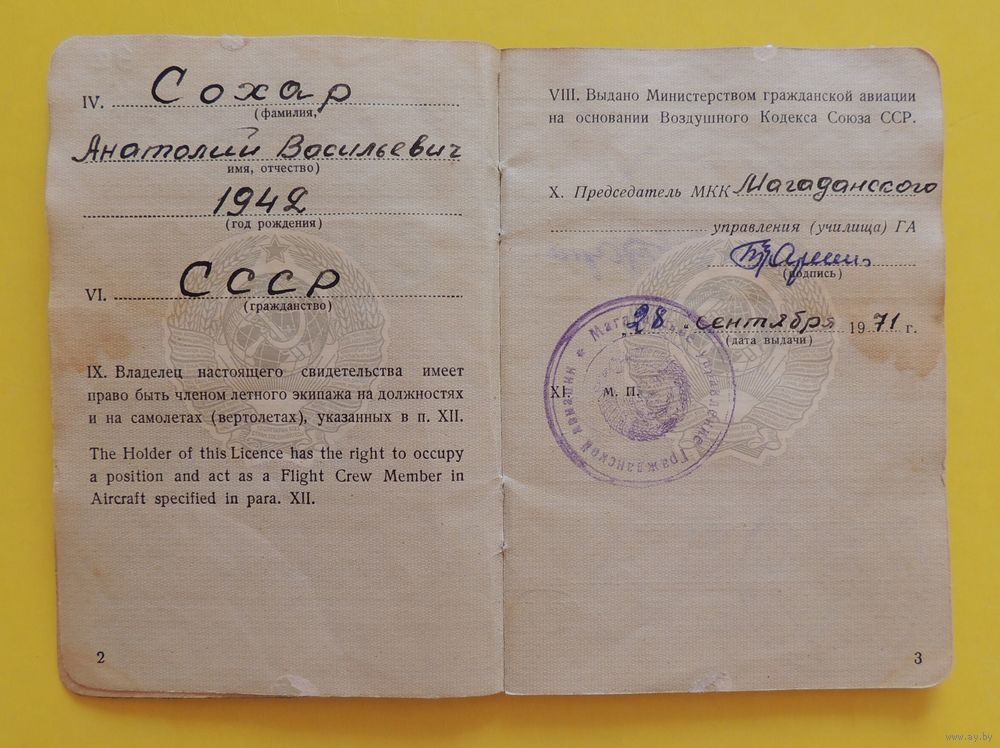 IV. Сохар
(фамилия,
Анатолий Васильевич
имя, отчество)
1942
(год рождения)
VI. СССР
(гражданство)
IX. Владелец настоящего свидетельства имеет
право быть членом летного экипажа на должностях
и на самолетах (вертолетах), указанных в п. XII.
The Holder of this Licence has the right to occupy
a position and act as a Flight Crew Member in
Aircraft specified in para. XII.
2
VIII. Выдано Министерством гражданской авиации
на основании Воздушного Кодекса Союза ССР.
X. Председатель МКК Магаданского
управления (училища) ГА
(подпись)
28 сентября 1971 г.
(дата выдачи)
XI. М. П.
Магаданское управление Гражданской авиации
3
www.ay.by